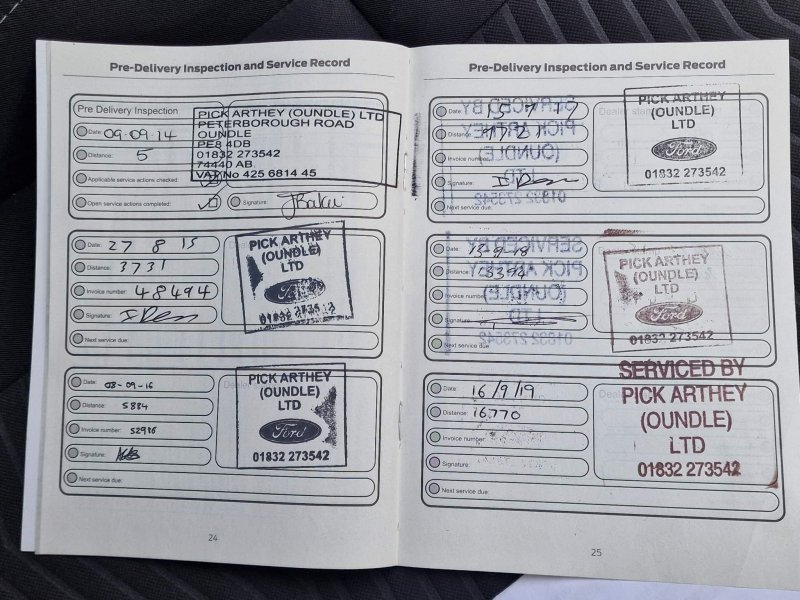 Pre-Delivery Inspection and Service Record
Pre Delivery Inspection
Date: 09.09.14
Distance: 5
Applicable service actions checked:
Open service actions completed:
Signature:
PICK ARTHEY (OUNDLE) LTD
PETERBOROUGH ROAD
OUNDLE
PE8 4DB
01832 273542
74440 AB
VAT No 425 6814 45
Date: 27 8 15
Distance: 3731
Invoice number: 48494
Signature:
Next service due:
PICK ARTHEY
(OUNDLE)
LTD
Ford
01832 273542
Date: 08-09-16
Distance: 5884
Invoice number: 52986
Signature:
Next service due:
PICK ARTHEY
(OUNDLE)
LTD
Ford
01832 273542
24
Pre-Delivery Inspection and Service Record
Date:
Distance:
Invoice number:
Signature:
Next service due:
PICK ARTHEY
(OUNDLE)
LTD
Ford
01832 273542
SERVICED BY
PICK ARTHEY
(OUNDLE)
LTD
01832 273542
Date:
Distance:
Invoice number:
Signature:
Next service due:
PICK ARTHEY
(OUNDLE)
LTD
Ford
01832 273542
SERVICED BY
PICK ARTHEY
(OUNDLE)
LTD
01832 273542
Date: 16/9/19
Distance: 16770
Invoice number:
Signature:
Next service due:
SERVICED BY
PICK ARTHEY
(OUNDLE)
LTD
01832 273542
25